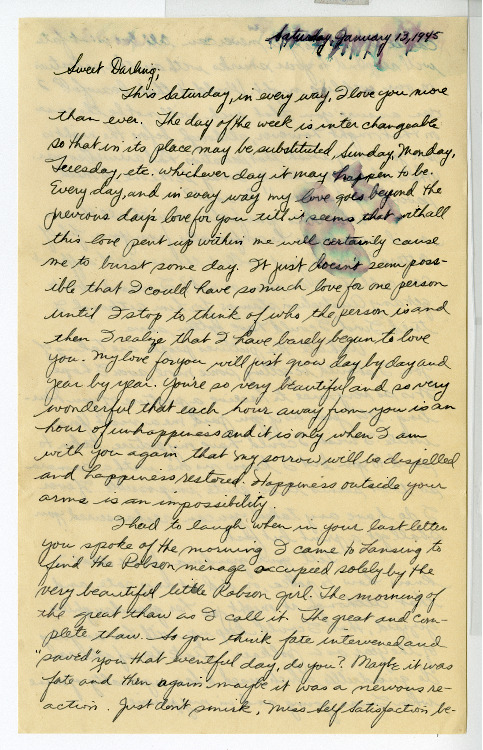 Saturday, January 13, 1945
Sweet Darling,
This Saturday, in every way, I love you more
than ever. The day of the week is inter changeable
so that in its place may be substituted, Sunday, Monday,
Tuesday, etc. whichever day it may happen to be.
Every day, and in every way my love goes beyond the
previous days love for you till it seems that withall
this love pent up within me will certainly cause
me to burst some day. It just doesn't seem poss-
ible that I could have so much love for one person
until I stop to think of who the person is and
then I realize that I have barely begun to love
you. My love for you will just grow day by day and
year by year. You're so very beautiful and so very
wonderful that each hour away from you is an
hour of unhappiness and it is only when I am
with you again that my sorrow will be dispelled
and happiness restored. Happiness outside your
arms is an impossibility.
I had to laugh when in your last letter
you spoke of the morning I came to Lansing to
find the Robson menage occupied solely by the
very beautiful little Robson girl. The morning of
the great thaw as I call it. The great and com-
plete thaw. So you think fate intervened and
"saved" you that eventful day, do you? Maybe it was
fate and then again maybe it was a nervous re-
action. Just don't smirk, Miss Self Satisfaction be-